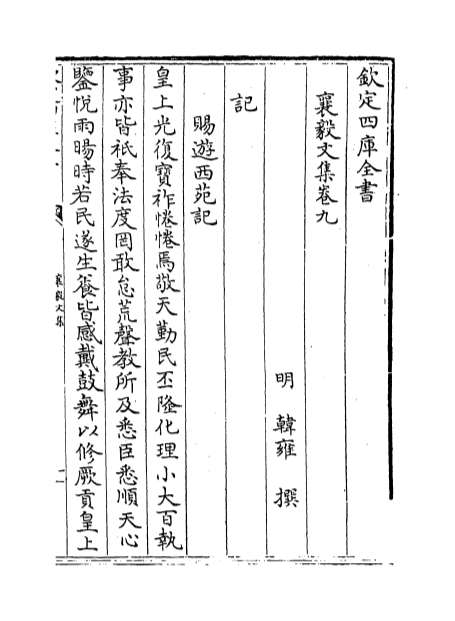 欽定四庫全書
襄毅文集卷九
明　韓雍　撰
記
賜遊西苑記
皇上光復寶祚惓惓焉敬天勤民丕隆化理小大百執
事亦皆祇奉法度罔敢怠荒聲教所及悉臣悉順天心
鑒悅雨暘時若民遂生養皆感戴鼓舞以修厥貢皇上
襄毅文集